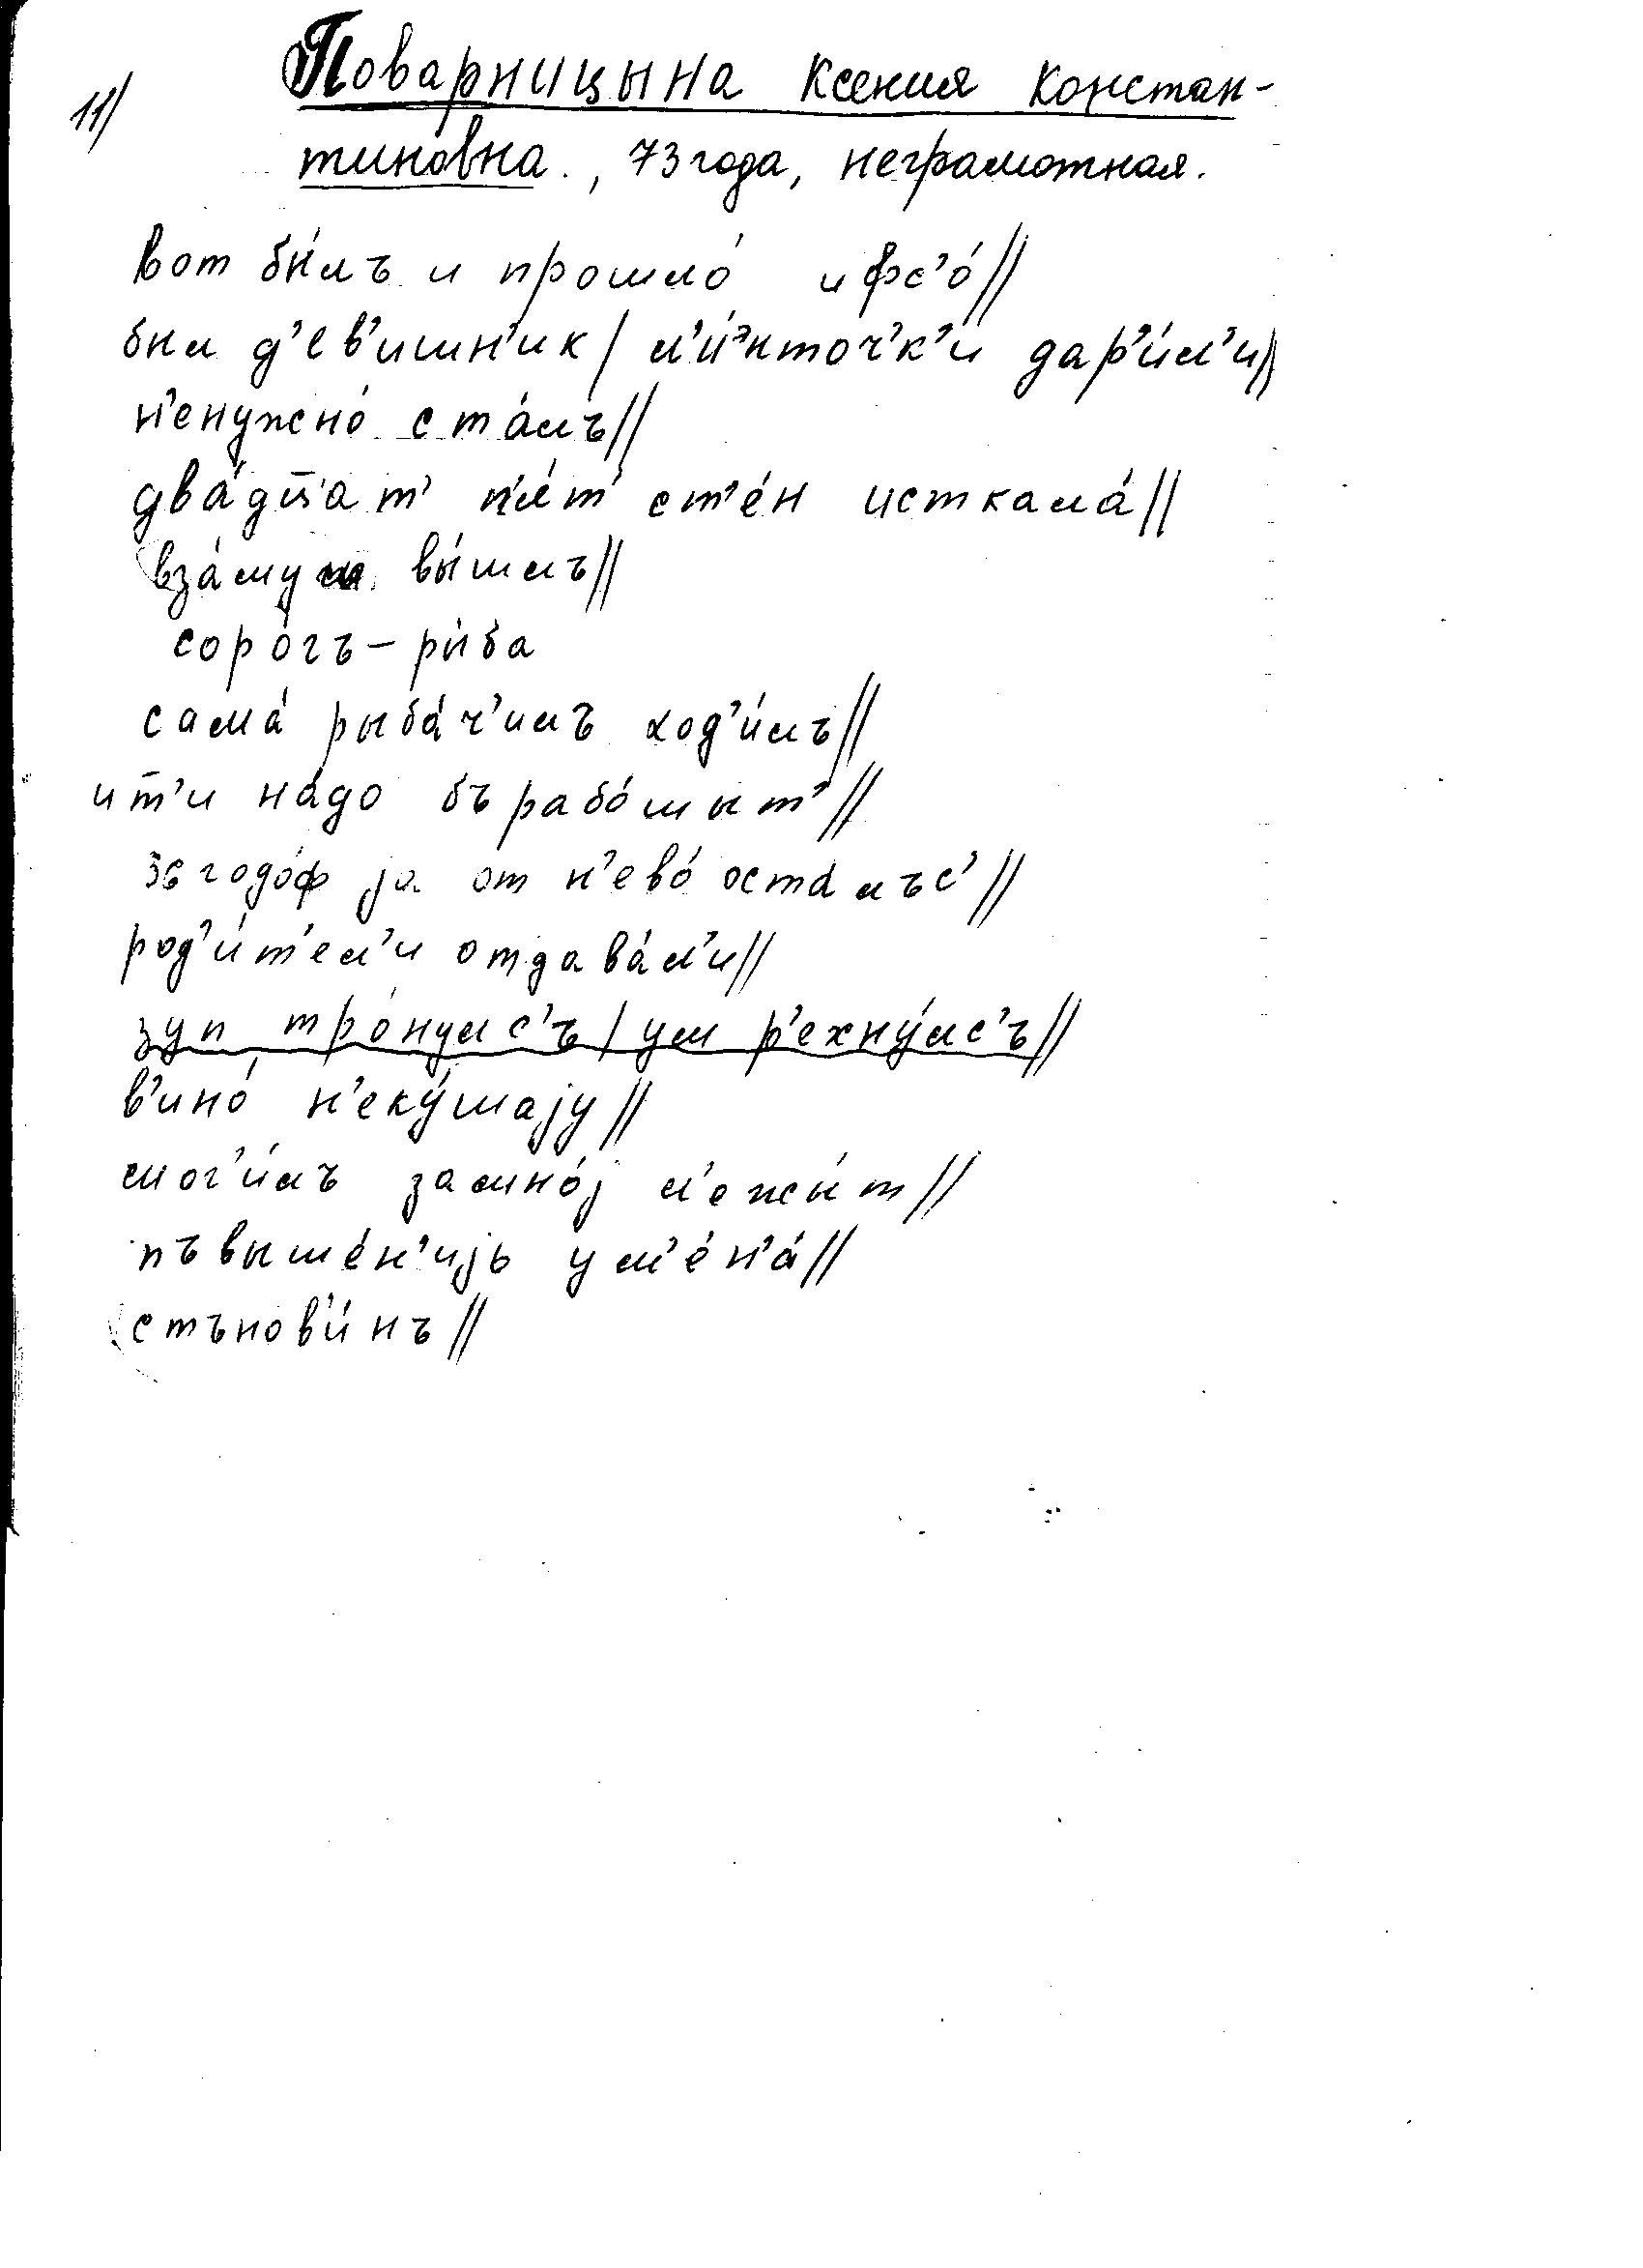 11)
Поварницына Ксения Констан-
тиновна., 73 года, неграмотная.
вот бы́лъ и прошло́ ифс'о́//
был д'ев'ишн'ик/ л'и́энточ'к'и дар'и́л'и//
н'енужно́ ста́лъ//
два́дц̄ат' п'а́т' ст'е́н исткала́//
вза́муш вы́шлъ//
соро́гъ – ры́ба
сама́ рыба́ч'илъ ход'и́лъ//
ит̄'и на́до бъ рабо́тыт'//
зъ годо́ф ја от н'ево́ оста́лъс'//
род'и́т'ел'и отдава́л'и//
зуп тро́нулс'ъ/ ум р'ехну́лс'ъ//
в'ино́ н'еку́шају//
мог'и́лъ замно́ј л'ежы́т//
пъвыше́н'ијь ум'е́н'а́//
стънов'и́нъ//